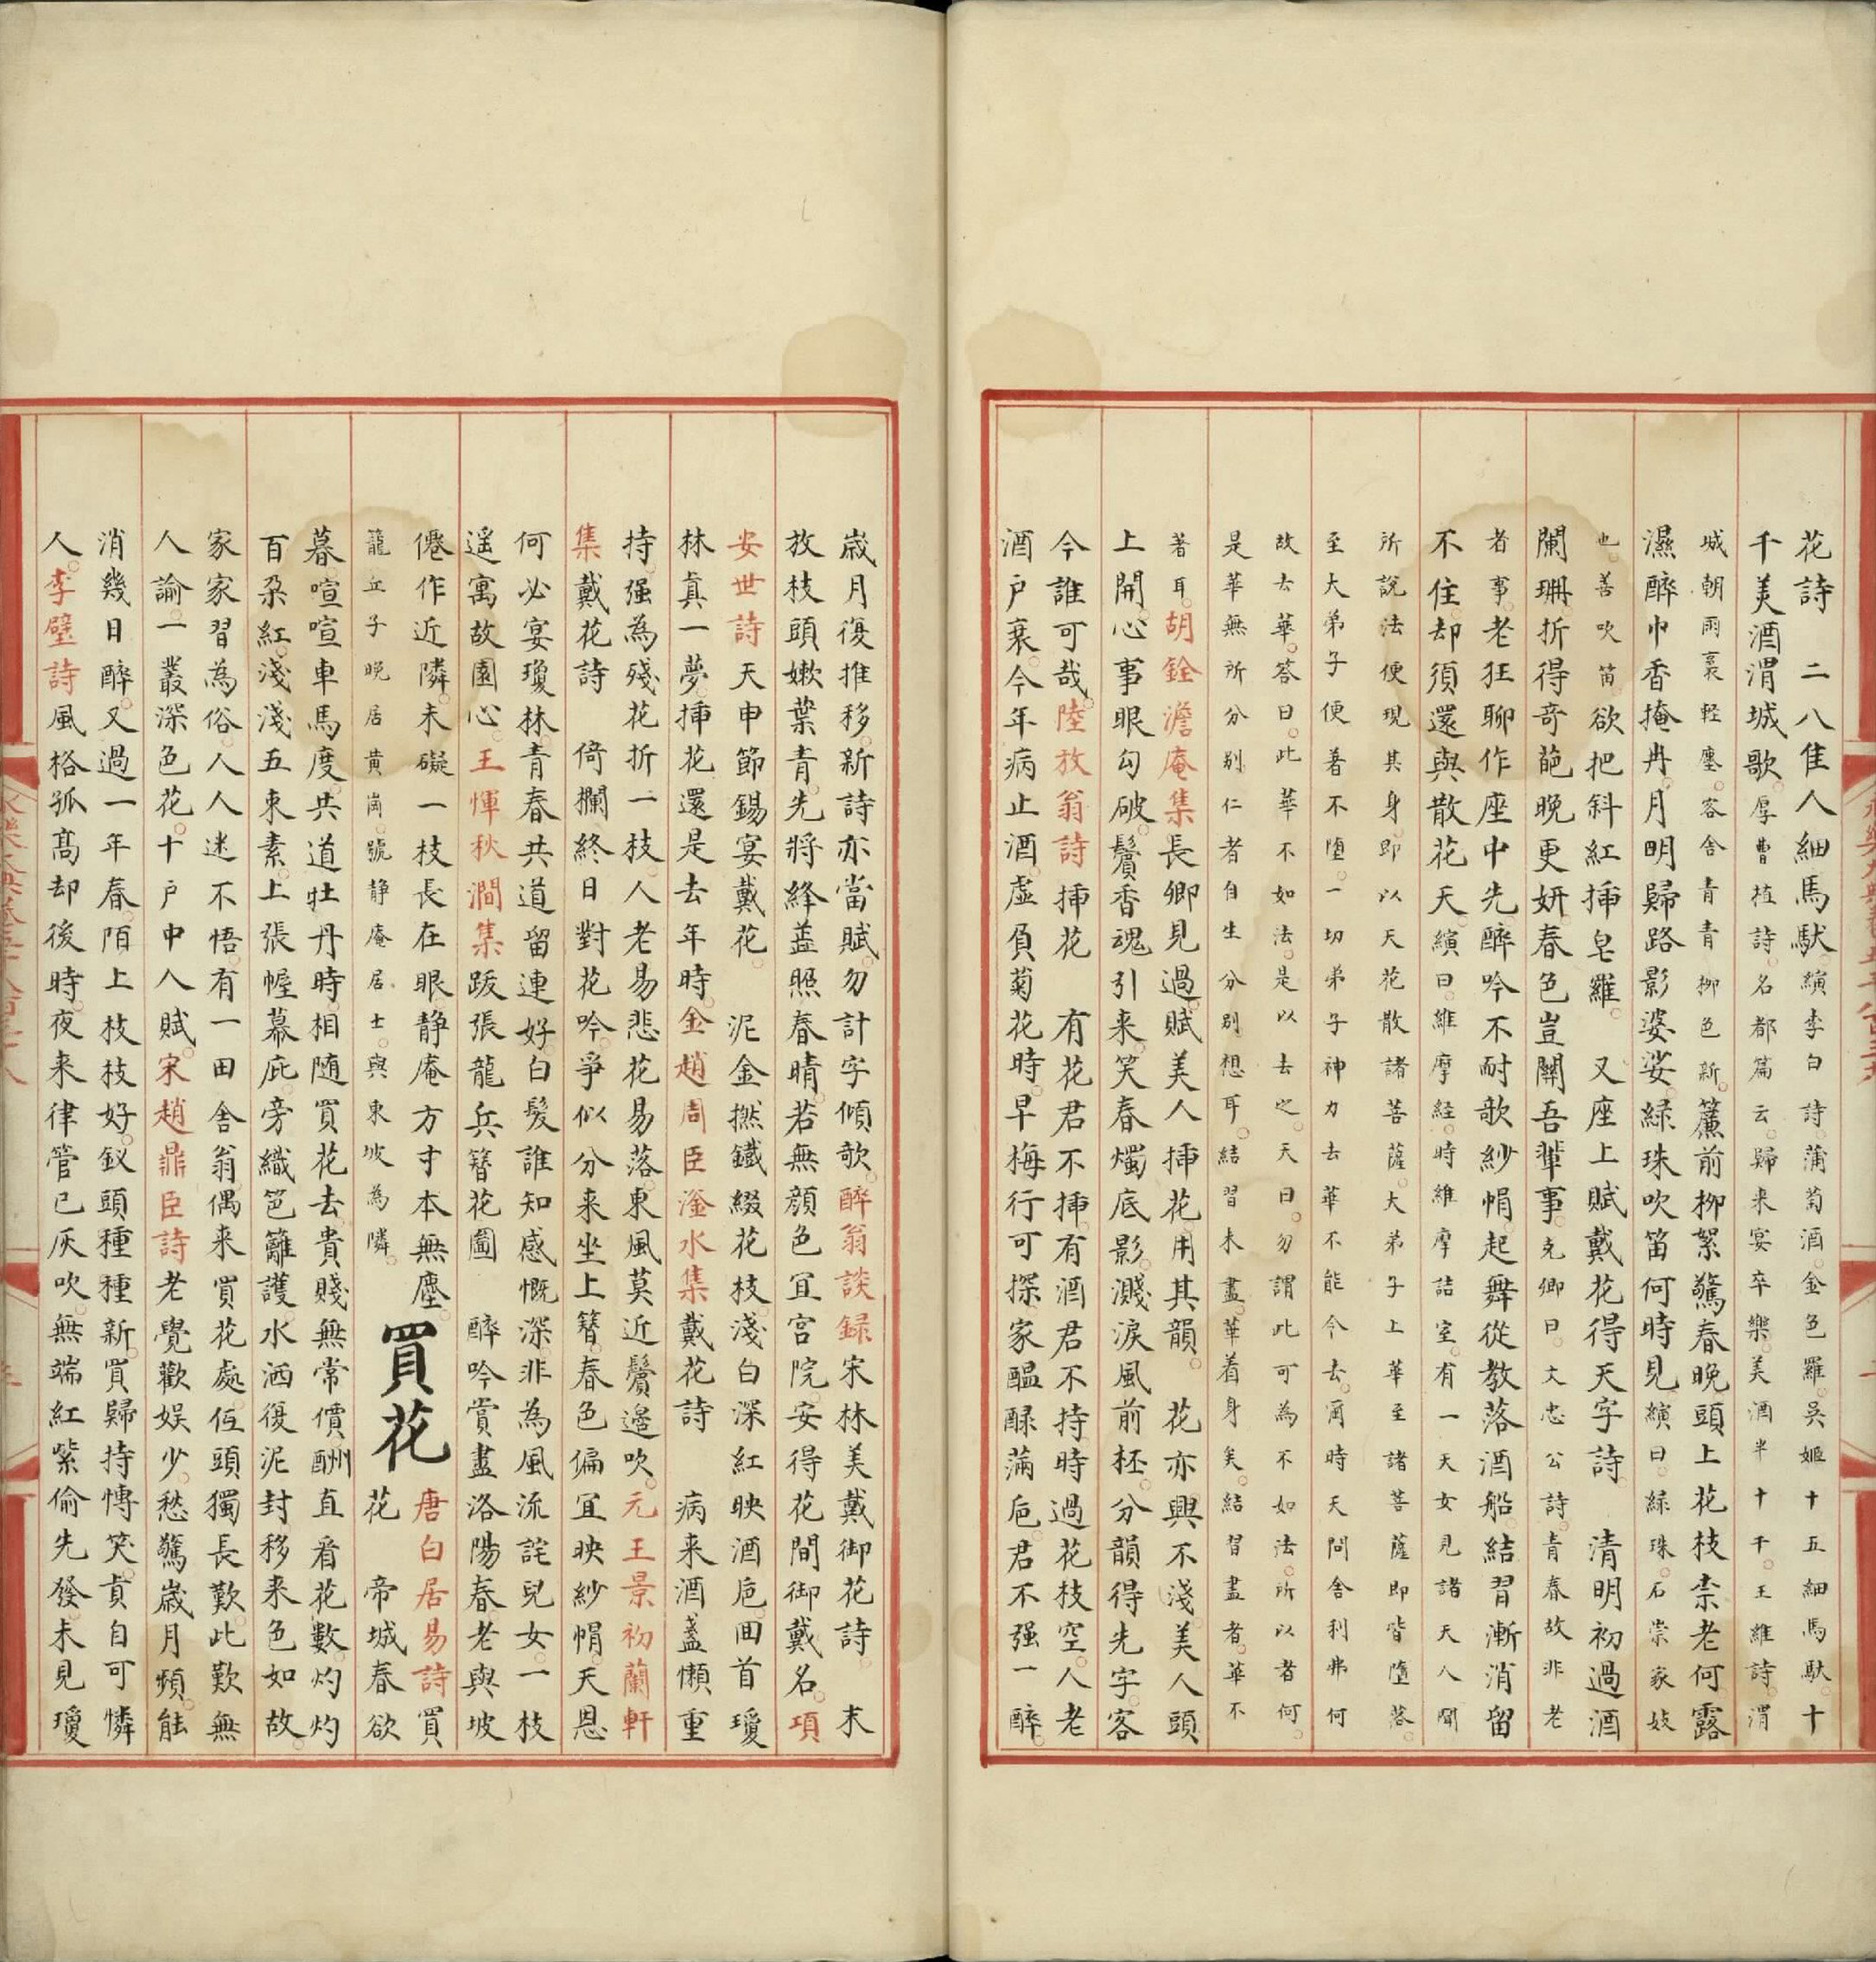 花詩　二八隹人細馬馱。縯李白詩。蒲萄酒。金色羅。吳姬十五細馬馱。十
千美酒渭城歌。厚曹植詩。名都篇云。歸来宴平樂。美酒斗十千。王維詩。渭
城朝雨裛輕塵。客舍青青柳色新。簾前柳絮驚春晚。頭上花枝柰老何。露
濕醉巾香掩冉。月明歸路影婆娑。緑珠吹笛何時見。縯曰。緑珠。石崇家妓
也。善吹笛。欲把斜紅揷皂羅。　又座上賦戴花得天字詩。　清明初過酒
闌珊。折得奇葩晚更妍。春色豈關吾軰事。克卿曰。文忠公詩。青春故非老
者事。老狂聊作座中先。醉吟不耐歌紗帽。起舞從教落酒船。結習漸消留
不住。却須還與散花天。縯曰。維摩經。時維摩詰室。有一天女見諸天人聞
所說法便現其身。即以天花散諸菩薩。大弟子上。華至諸菩薩即皆墮落。
至大弟子便著不墮。一切弟子神力去華不能令去。爾時天問舍利弗何
故去華。答曰。此華不如法。是以去之。天曰。勿謂此可為不如法。所以者何。
是華無所分别。仁者自生分别想耳。結習未盡。華着身矣。結習盡者。華不
著耳。胡銓澹庵集長卿見過。賦美人揷花用其韻。　花亦興不淺。美人頭
上開。心事眼勾破。鬢香魂引来。笑春燭底影。濺淚風前杯。分韻得先字。客
今誰可哉。陸放翁詩揷花　有花君不揷。有酒君不持。時過花枝空。人老
酒户衰。今年病止酒。虛負菊花時。早梅行可探。家醖醁滿巵。君不强一醉。
歲月復推移。新詩亦當賦。勿計字傾欹。醉翁談録宋林美戴御花詩　末
放枝頭嫩葉青。先將絳葢照春晴。若無顏色冝宫院。安得花間御戴名。項
安世詩天申節錫宴戴花。　泥金撚鐵綴花枝。淺白深紅映酒巵。囬首瓊
林真一夢。揷花還是去年時。金趙周臣滏水集戴花詩　病来酒盞懶重
持。强為殘花折一枝。人老易悲花易落。東風莫近鬢邉吹。元王景初蘭軒
集戴花詩　倚欄終日對花吟。爭似分来坐上簪。春色偏冝映紗帽。天恩
何必宴瓊林。青春共道留連好。白髮誰知感慨深。非為風流詫兒女。一枝
遥寓故園心。王惲秋澗集跋張龍兵簪花圖　醉吟賞盡洛陽春。老與坡
僊作近隣。未礙一枝長在眼。静庵方寸本無塵。
龍丘子晚居黄崗。號静庵居士。與東坡為隣。
買花
唐白居易詩買
花　帝城春欲
暮。喧喧車馬度。共道牡丹時。相随買花去。貴賤無常價。酬直看花數。灼灼
百朶紅。淺淺五束素。上張幄幕庇。旁織笆籬護。水洒復泥封。移来色如故。
家家習為俗。人人迷不悟。有一田舍翁。偶来買花處。伍頭獨長歎。此歎無
人諭。一叢深色花。十户中人賦。宋趙鼎臣詩老覺歡娱少。愁驚歲月頻。能
消幾日醉。又過一年春。陌上枝枝好。釵頭種種新。買歸持慱笑。貞自可憐
人。李壁詩風格孤高却後時。夜来律管已灰吹。無端紅紫偷先發。未見瓊